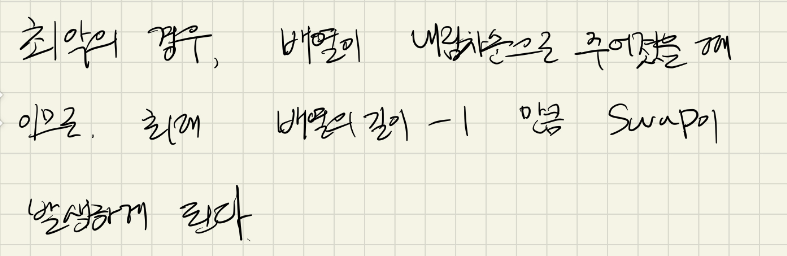 최악의 경우, 배열이 내림차순으로 주어졌을 때
이므로. 최대 배열의 길이 -1 만큼 Swap이
발생하게 된다.